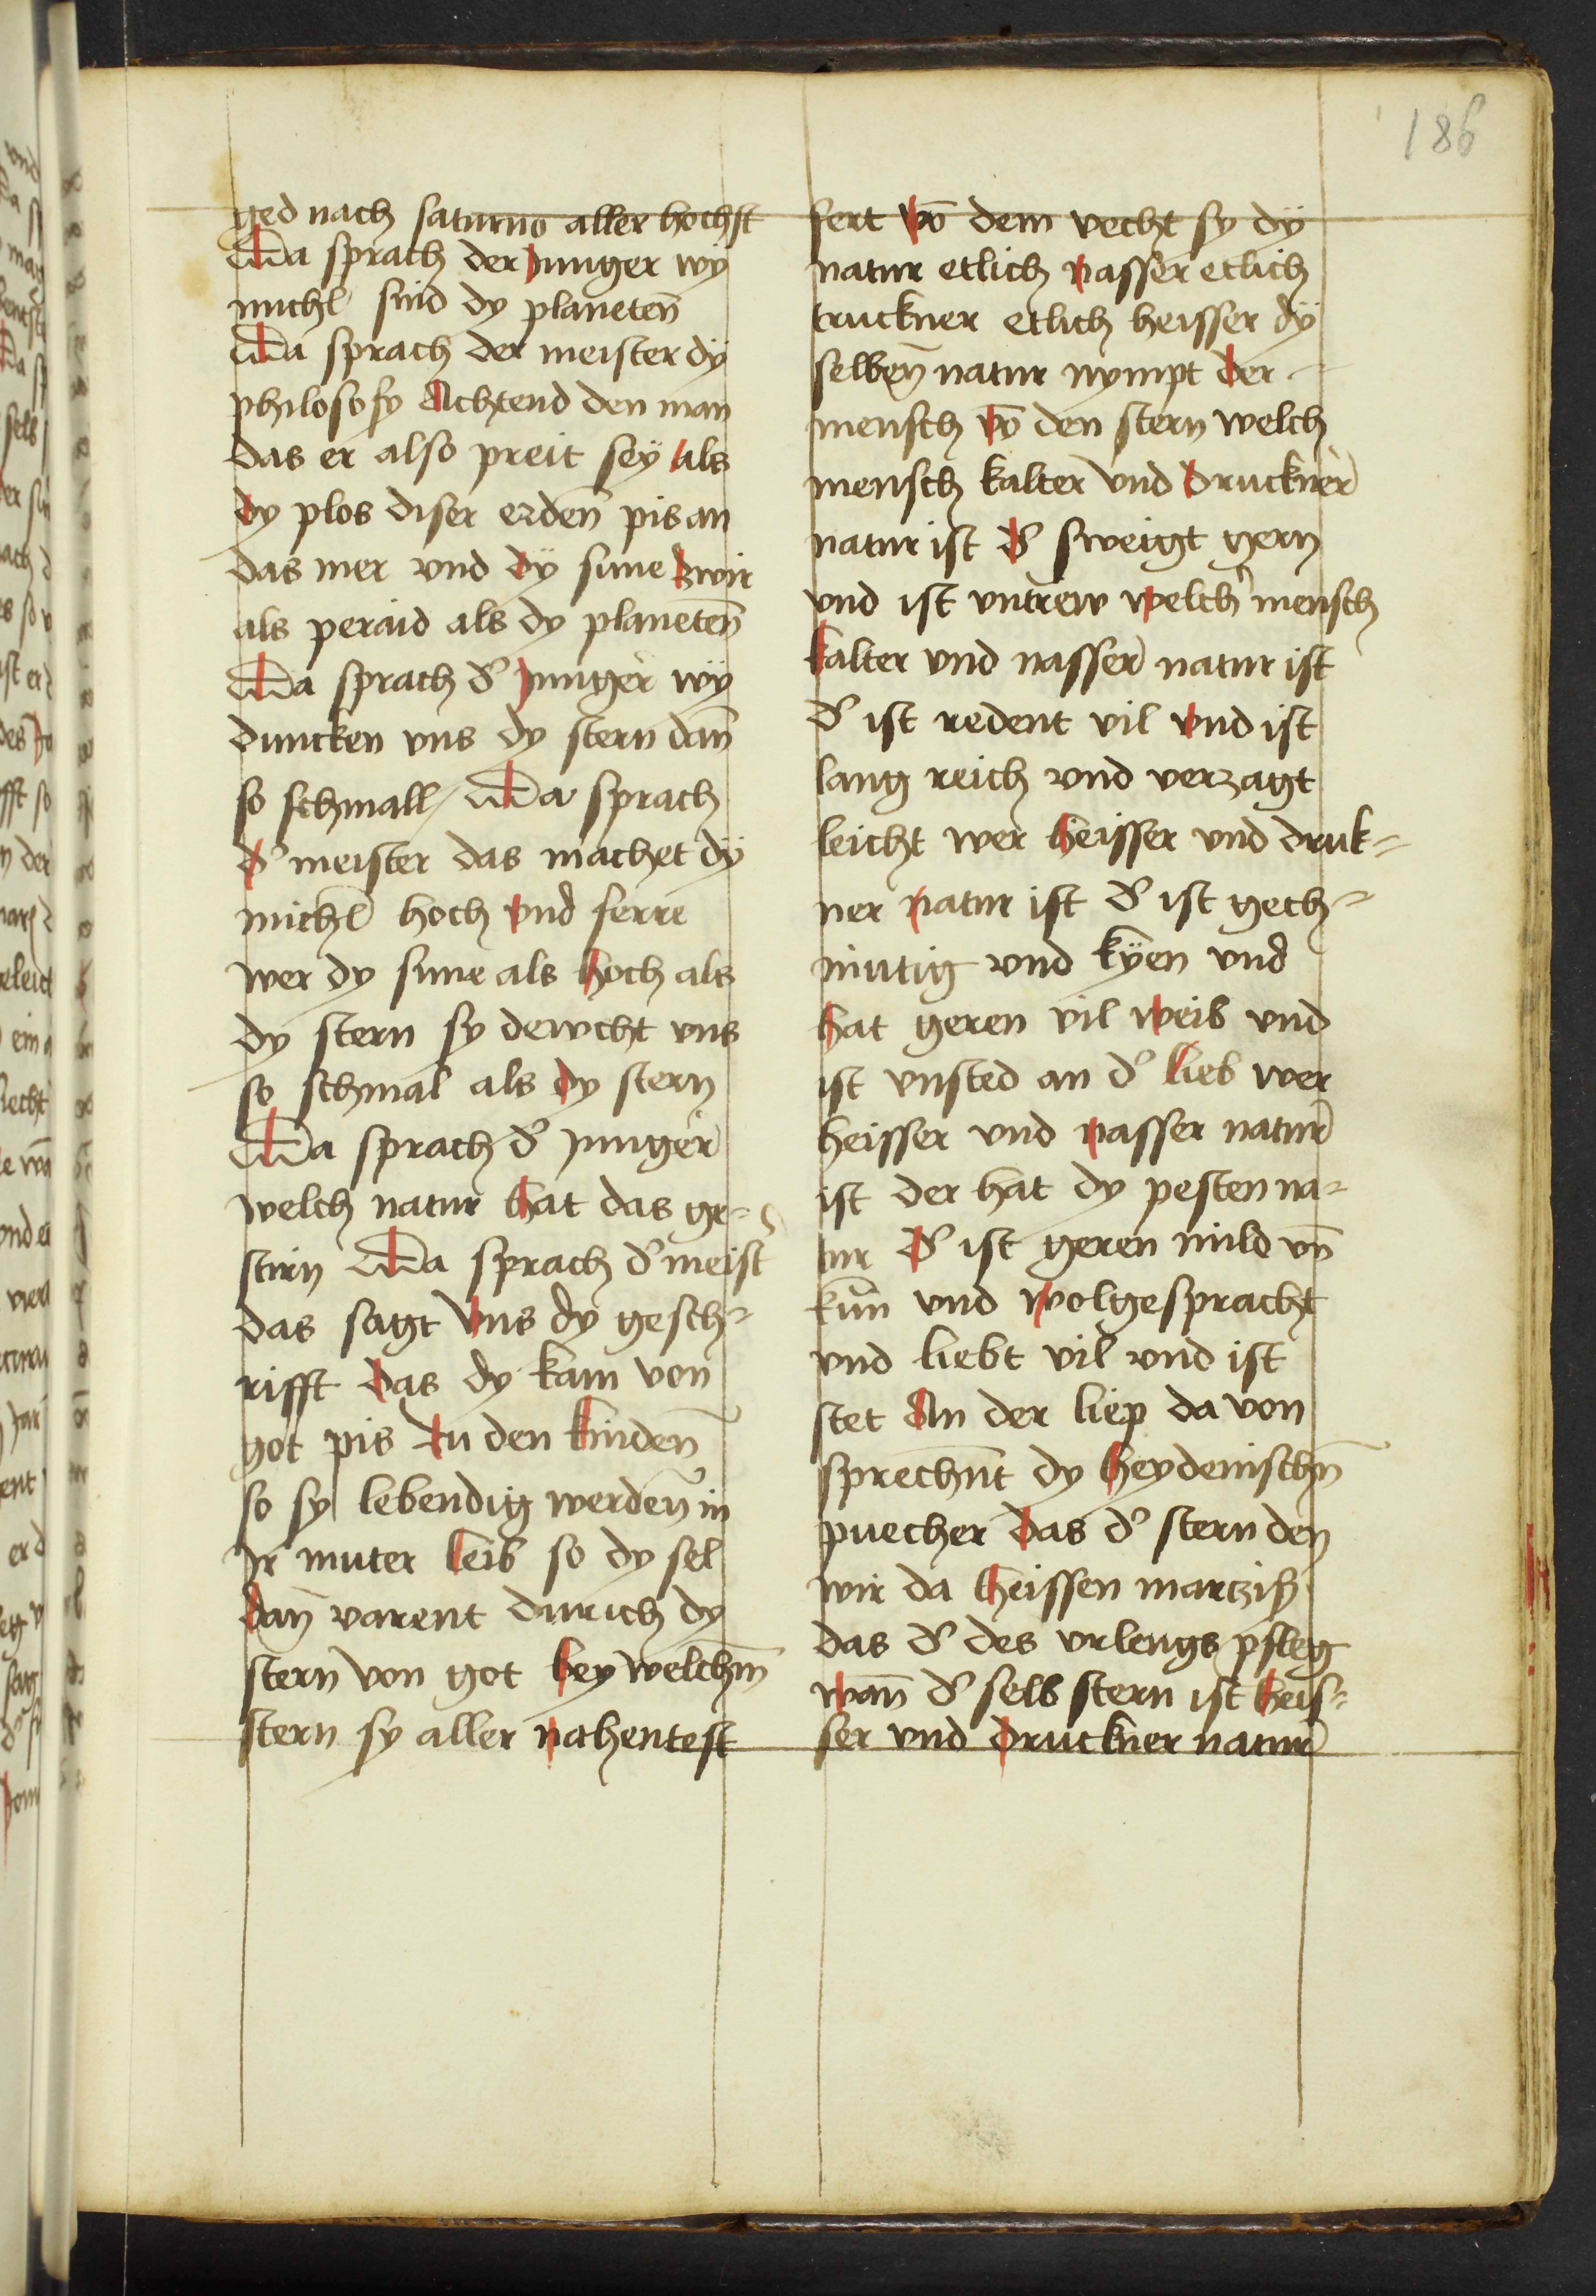 186
ged nach saturno aller hochst
Da sprach der junger wy
michl sind dy planeten̄
Da sprach der meister dÿ
philosofy Achtend den man
das er also preit seÿ als
dy plos diser erden̄ pis an
das mer vnd dÿ sune zwir
als peraid als dy planeten̄
Da sprach d' junger wÿ
duncken vns dy stern dan̄
so schmall / Da sprach
d' meister das machet dÿ
michl hoch vnd ferre
wer dy sune als hoch als
dy stern sy dewcht vns
so schmal als dy stern
Da sprach d' junger
welch natur hat das ge-
stirn Da sprach d' meist'
das sagt vns dy gesch-
rifft das dy kam von
got pis zu den kinden̄
so sy lebendig werden̄ in
Ir muter leib so dy sel
dan̄ varent durich dy
stern von got bey welchm̄
stern sy aller nahentest
fert vō dem vecht sy dÿ
natur etlich nasser etlich
truckner etlich heisser dÿ
selben̄ natur nympt der
mensch vō den stern welch
mensch kalter vnd druckner
natur ist d' sweigt gern
vnd ist vntrew welch' mensch
kalter vnd nasser natur ist
d' ist redent vil vnd ist
lang reich vnd verzagt
leicht wer heisser vnd druk-
ner natur ist d' ist gech-
mutig vnd kÿen vnd
hat geren vil weib vnd
ist vnsted an d' lieb wer
heisser vnd nasser natur
ist der hat dy pesten na-
tur d' ist geren mild vn̄
kun̄ vnd wolgespracht
vnd liebt vil vnd ist
stet An der liep da von
sprechn̄t dy heydenischn̄
puecher das d' stern den
wir da heissen martzih
das d' des vrlengs pfleg
wan̄ d' selb stern ist heis-
ser vnd druckner natur